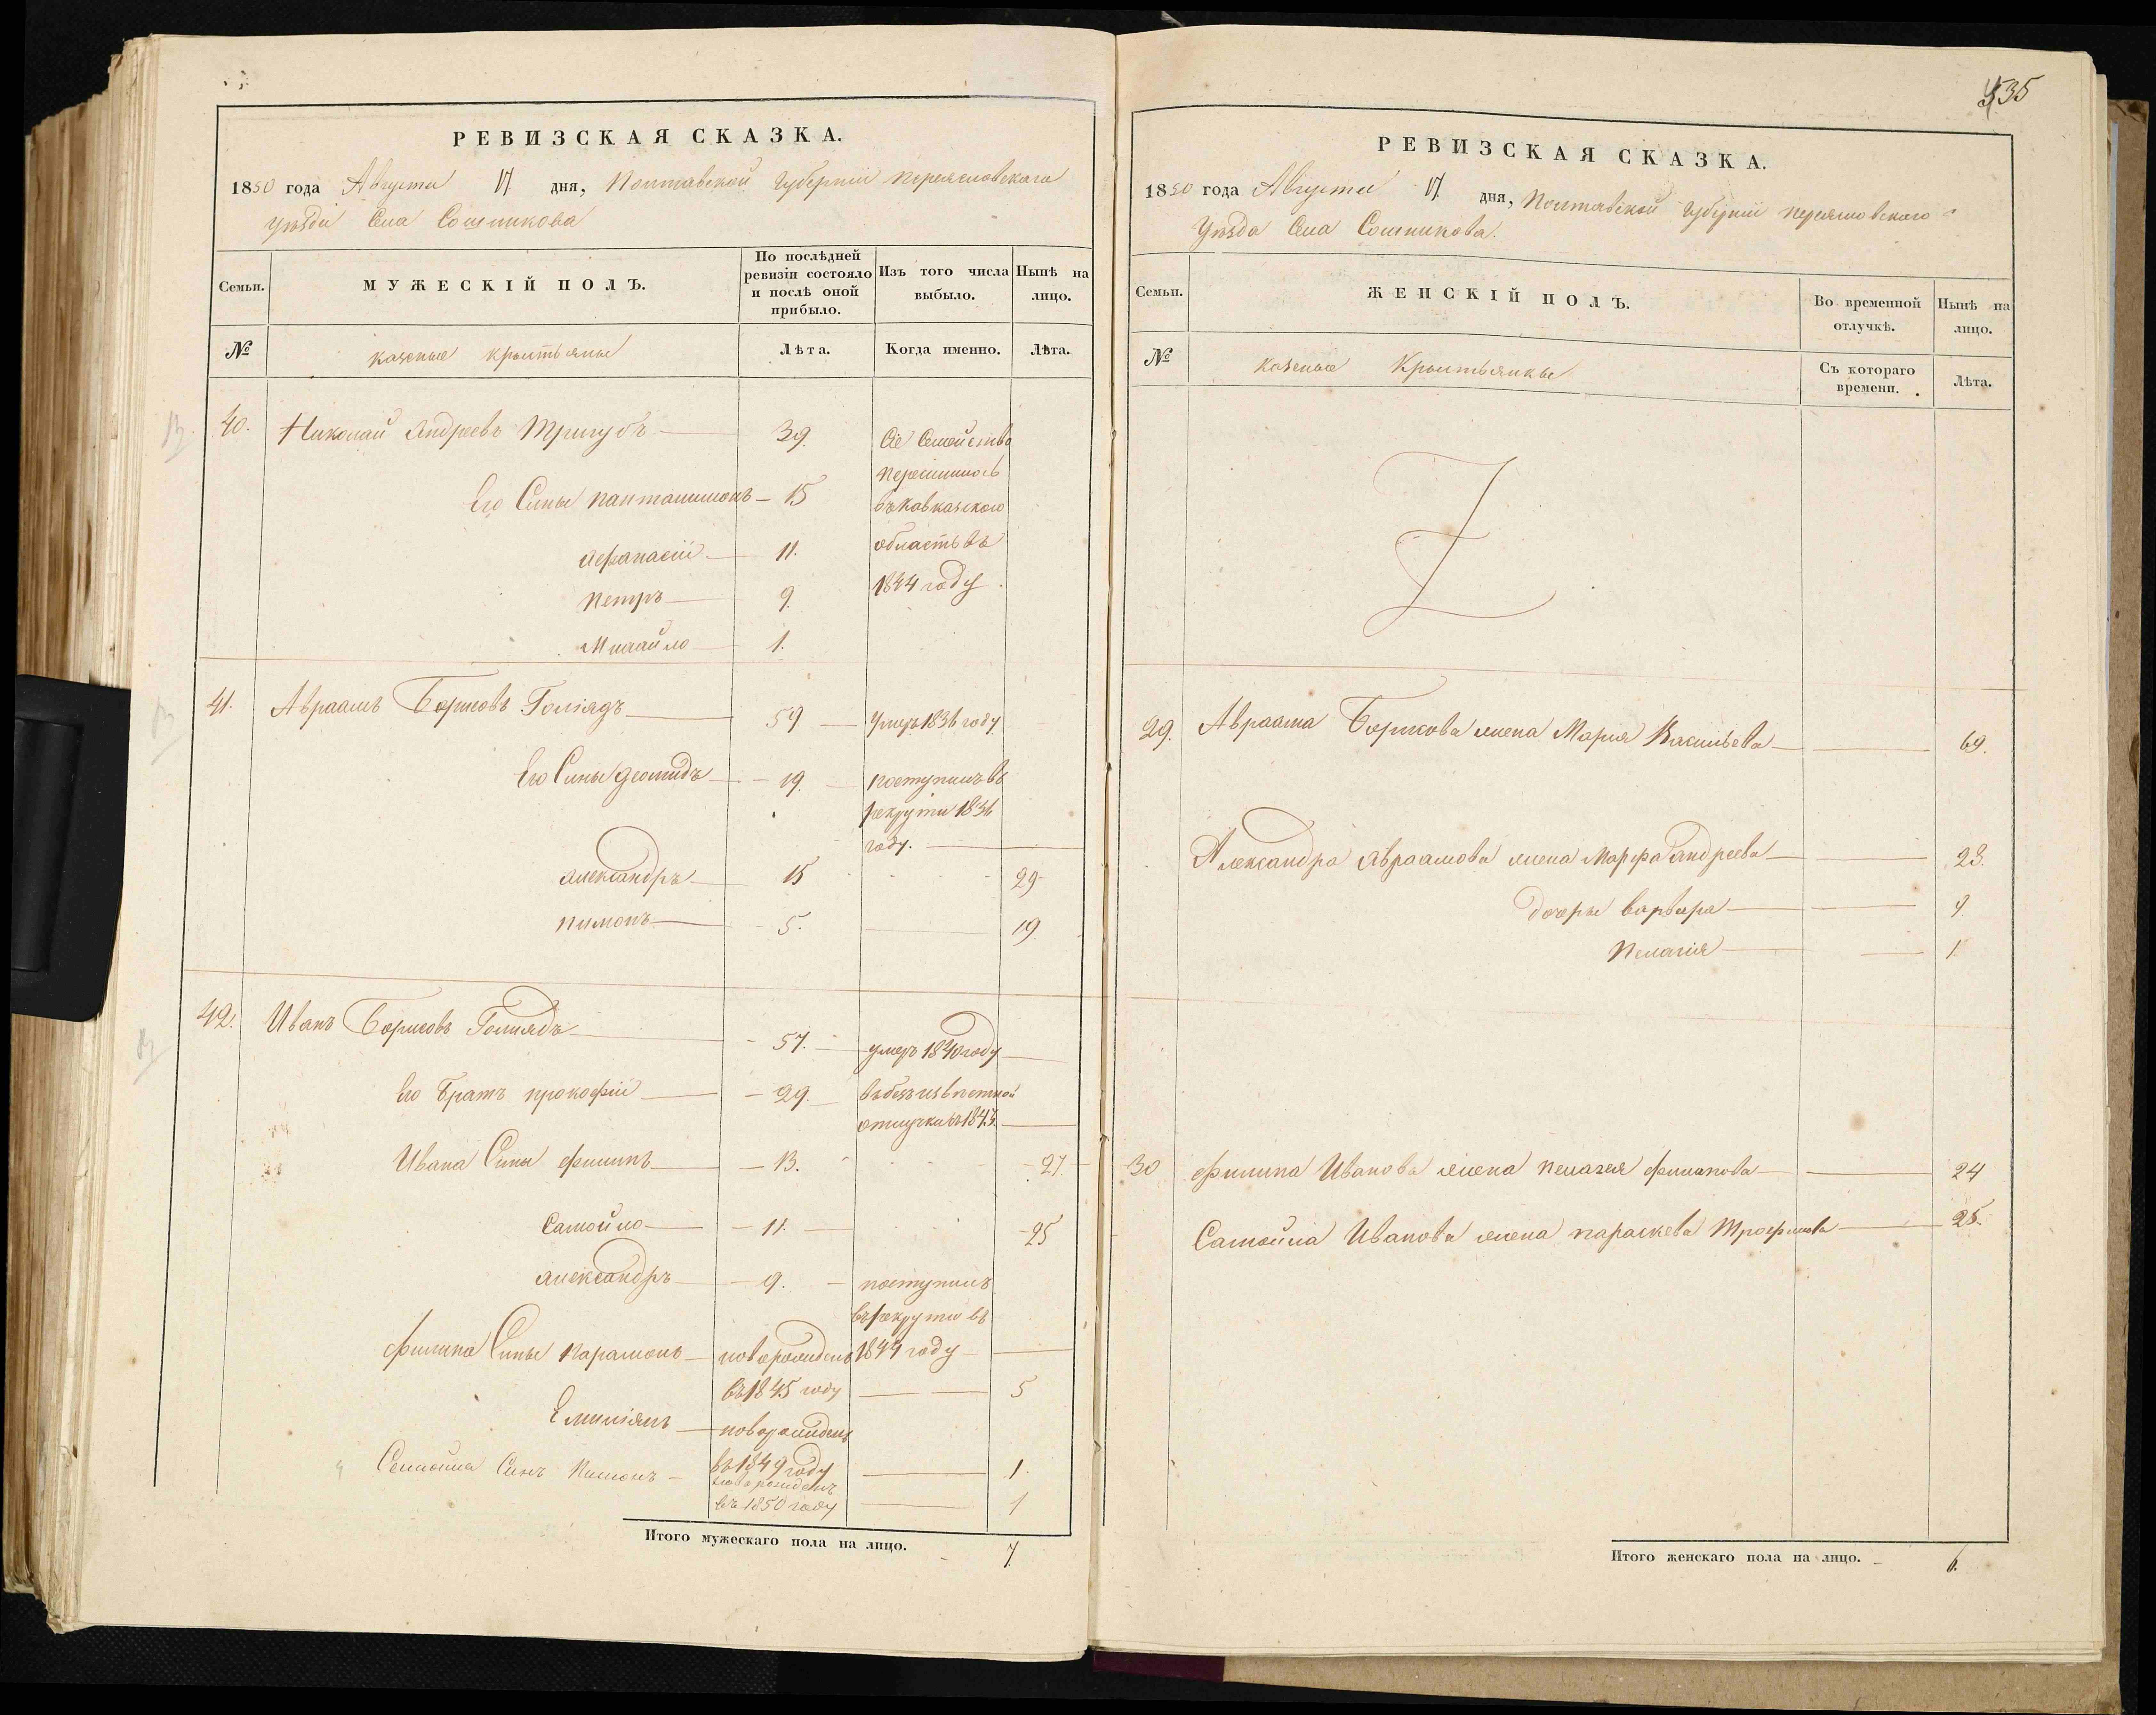 РЕВИЗСКАЯ СКАЗКА.
1850 года Августа 17 дня, Полтавской Губерніи Переясловскаго
уѣзда Села Сошникова
Семьи. МУЖЕСКІЙ ПОЛЪ. По послѣдней ревизіи состояло и послѣ оной прибыло. Изъ того числа выбыло. Нынѣ на лицо.
№ казеные крестьяне Лѣта. Когда именно. Лѣта.
40. Николай Андреевъ Тригубъ 39. Сіе Семейство
переселилось
Его Сины Панталимонъ 15 въ Кавказскою
Афанасій 11. область въ
Петръ 9. 1844 году
Михайло 1.
41. Авраамъ Борисовъ Голіядъ 59 умеръ 1836 году
Его Сины Деомидъ 19. поступилъ въ
рекруты 1836
году.
Александръ 15 29
Пимонъ 5. 19
42. Иванъ Борисовъ Голиядъ 57. умеръ 1840 году
Его Братъ Прокофій 29 въ безъизвестной
отлучки въ 1843.
Ивана Сины Филипъ 13. 27.
Самойло 11. 25
Александръ 9. поступилъ
въ рекруты въ
Филипа Сины Парамонъ новорожденъ 1844 году
въ 1845 году 5
Емиліянъ новорожденъ
въ 1849 году 1.
Самойла Синъ Пимонъ новорожденъ
въ 1850 году 1
Итого мужескаго пола на лицо. 7
535
РЕВИЗСКАЯ СКАЗКА.
1850 года Августа 17 дня, Полтавской Губерніи Переясловского
Уѣзда Села Сошникова.
Семьи. ЖЕНСКІЙ ПОЛЪ. Во временной отлучкѣ. Нынѣ на лицо.
№ казеные Крестьянки Съ котораго времени. Лѣта.
29. Авраама Борисова жена Марія Васильева 69.
Александра Авраамова жена Марфа Андреева 28.
дочери Варвара 9.
Пелагія 1.
30 Филипа Иванова жена Пелагея Филипова 24
Самойла Иванова жена Параскева Трофимова 25.
Итого женскаго пола на лицо. 6.